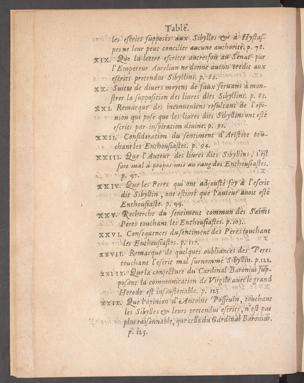 Table.
les escrits supposés aux Sibylles & à Hystas-
pes ne leur peut concilier aucune authorité. p. 78.
XIX. Que la lettre escritte autresfois au Senat par
l'Empereur Aurelian ne donne aucun credit aux
escrits pretendus Sibyllins. p. 82.
XX. Suitte de divers moyens de faux servans à mon-
strer la supposition des livres dits Sibyllins. p. 85.
XXI. Remarque des inconveniens resultans de l'opi-
nion qui pose que les livres dits Sibyllins ont esté
escrits par inspiration divine. p.
XXII. Consideration du sentiment d'Aristote tou-
chant les Enthousiastes. p. 94.
XXIII. Que l'Auteur des livres dits Sibyllins, s'est
fort mal à propos mis au rang des Enthousiastes.
p. 97.
XXIV. Que les Peres qui ont adjousté foy à l'escrit
dit Sibyllin, ont estimé que l'auteur avoit esté
Enthousiaste. p. 99.
XXV. Recherche du sentiment commun des Saints
Peres touchant les Enthousiastes. p.
XXVI. Consequences du sentiment des Peres touchant
les Enthousiastes. p.
XXVII. Remarque de quelques oubliances des Peres
touchant l'escrit mal surnommé Sibyllin. p.
XXVIII. Que la conjecture du Cardinal Baronius sup-
posant la communication de Virgile avec le grand
Herode est insoustenable. p. 123
XXIX. Que l'opinion d'Antoine Possevin, touchant
les Sibylles & leurs pretendus escrits, n'est pas
plus raisonnable, que celle du Cardinal Baronius.
p. 125.